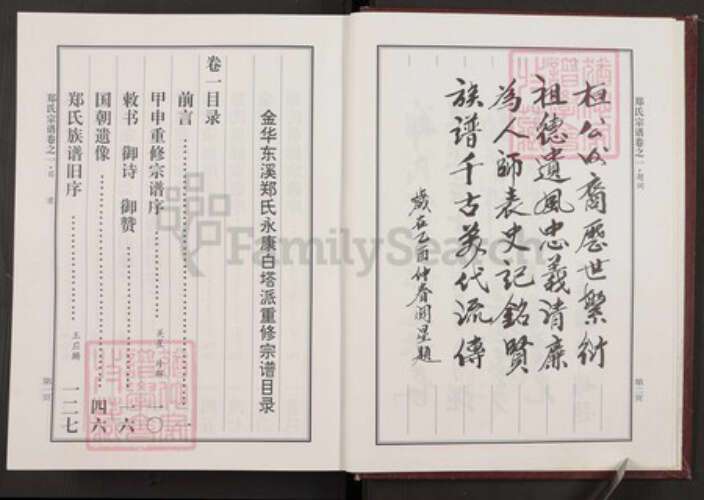 桓公后裔歷世繁衍
祖德遺風忠義清廉
為人師表史記銘賢
族譜千古萬代流傳
歲在乙酉仲春闵星題
郑氏宗谱卷之一·题词
第二页
金华东溪郑氏永康白塔派重修宗谱目录
卷一目录
前言……一
甲申重修宗谱序……一〇
敕书 御诗 御赞……一六
国朝遗像……四六
郑氏族谱旧序……王应麟 一二七
郑氏宗谱卷之一·目录
第一页
FamilySearch